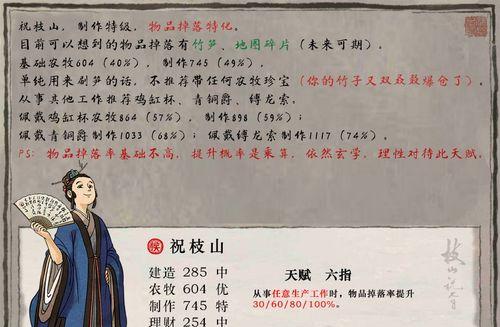 祝枝山，制作特级，物品掉落特化。
目前可以想到的物品掉落有竹笋、地图碎片（未来可期）。
基础农牧604（40%），制作745（49%）。
单纯用来刷笋的话，不推荐带任何农牧珍宝（你的竹子又双叒叕爆仓了）。
从事其他工作推荐鸡缸杯、青铜爵、缚龙索。
佩戴鸡缸杯农牧864（57%），制作898（59%）；
佩戴青铜爵制作1033（68%）；佩戴缚龙索制作1117（74%）。
PS：物品掉落率基础不高，提升概率是乘算，依然玄学，理性对待此天赋。
祝枝山
建造 285 中
农牧 604 优
制作 745 特
理财 254 中
天赋 六指
从事任意生产工作时，物品掉落率提升
30/60/80/100%。